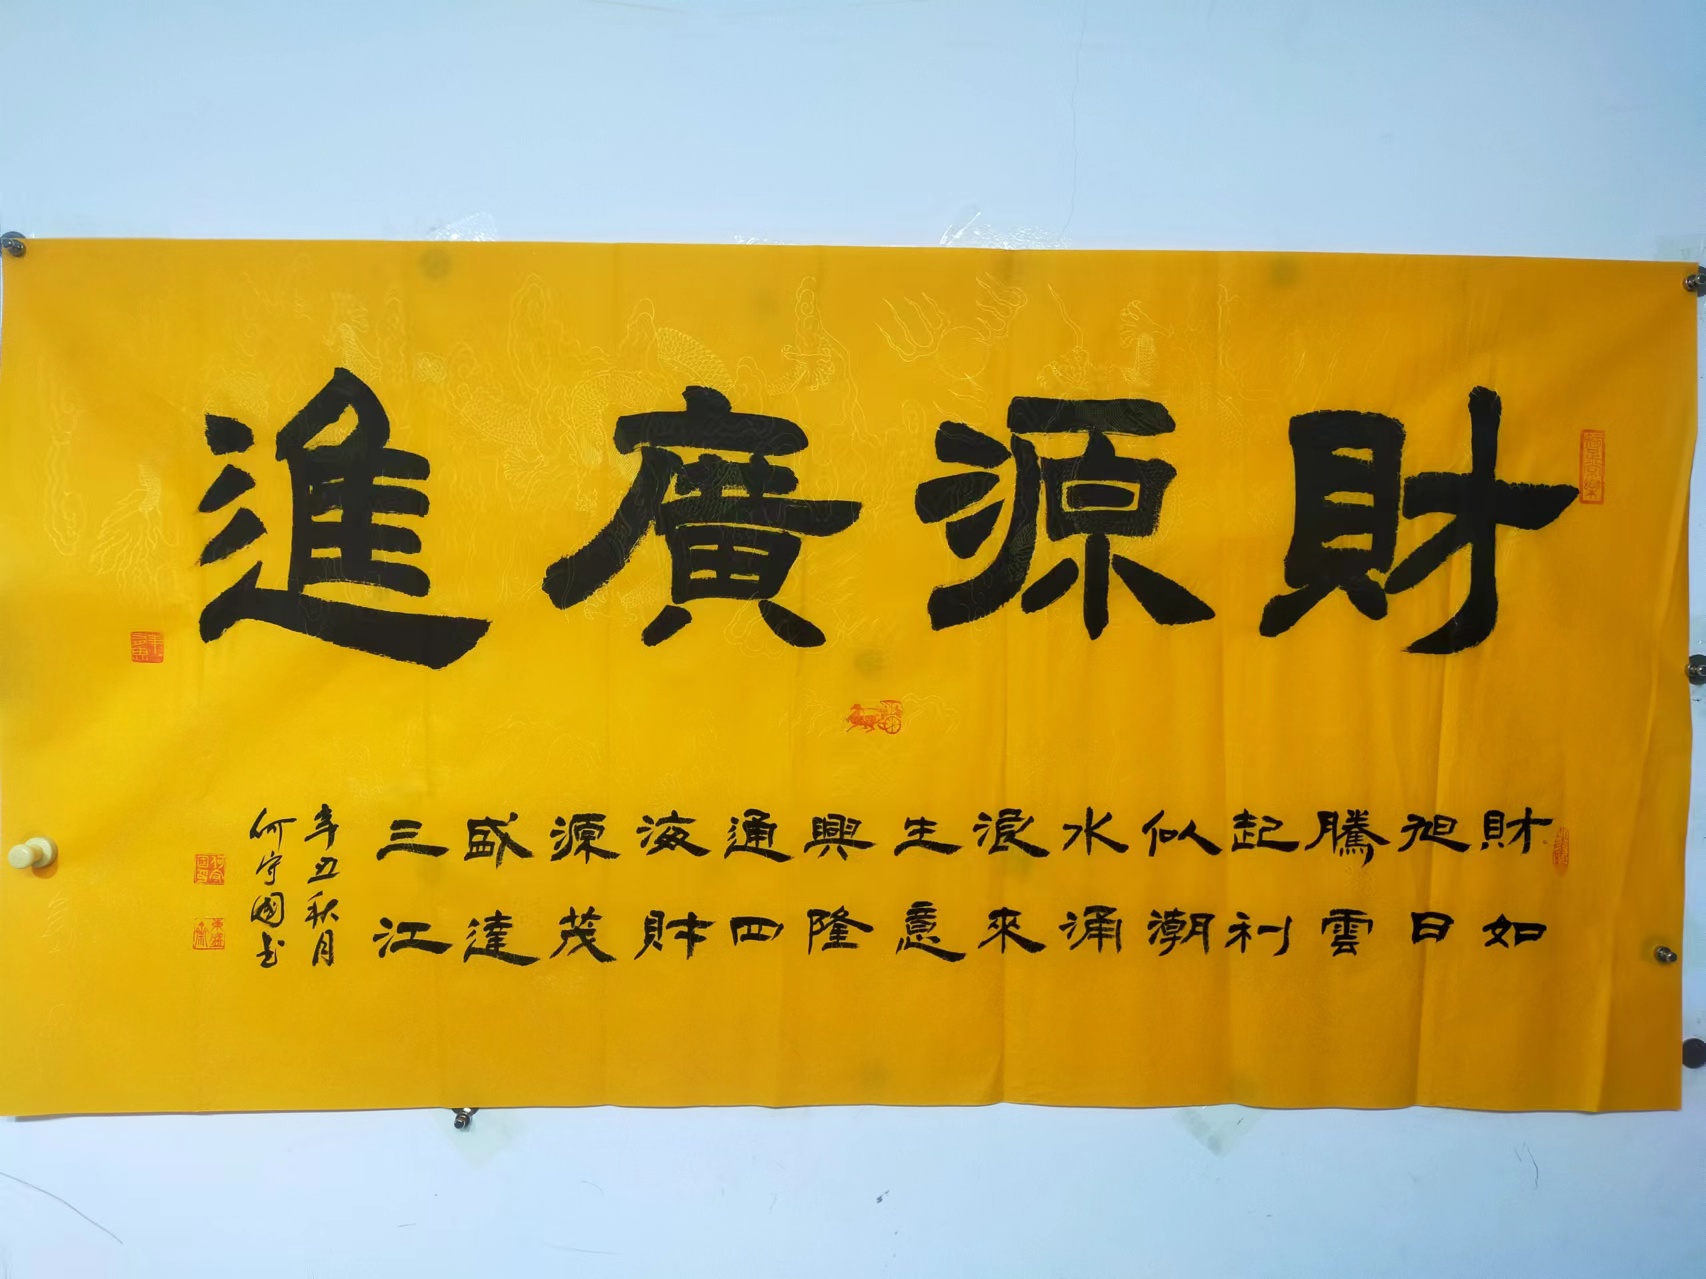 財源廣進
財如
旭日
騰雲
起利
似潮
水涌
浪來
生意
興隆
通四
海財
源茂
盛達
三江
辛丑秋月
何守國书